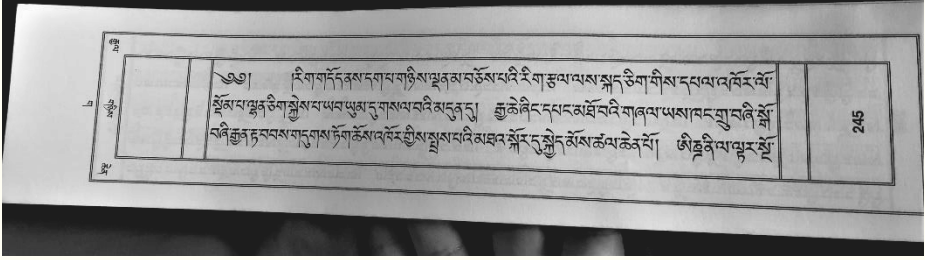 ༄༅། །རིག་གདོད་ནས་དག་པ་གཉིས་ལྡན་མ་བཅོས་པའི་རིག་རྩལ་ལས་སྐད་ཅིག་གིས་དཔལ་འཁོར་ལོ་
སྡོམ་པ་ལྷན་ཅིག་སྐྱེས་པ་ཡབ་ཡུམ་དུ་གསལ་བའི་མདུན་དུ། རྒྱ་ཆེ་ཞིང་དཔང་མཐོ་བའི་གཞལ་ཡས་ཁང་གྲུ་བཞི་སྒོ་
བཞི་རྒྱན་རྟ་བབས་གདུགས་ཏོག་ཆོས་འཁོར་གྱིས་སྤྲས་པའི་མཐའ་སྐོར་དུ་སྐྱེད་མོས་ཚལ་ཆེན་པོ། ཨིནྡྲ་ནི་ལ་ལྟར་སྔོ་
245